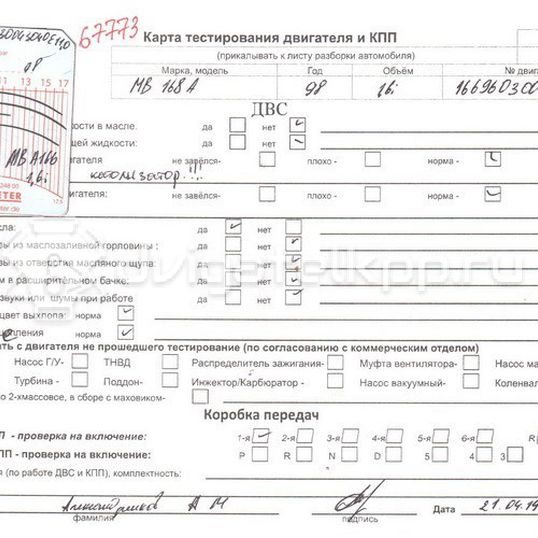 67773
Карта тестирования двигателя и КПП
(прикалывать к листу разборки автомобиля)
Марка, модель Год Объём № двиг
МВ 168 А 98 1,6i 166960300
11 13 15 17
ДВС
кости в масле. да нет
щей жидкости: да нет
вигателя не завёлся- плохо - норма -
МВ А166
1,6i
катализатор!!!
вигателя: не завёлся- плохо - норма -
ETER
ter.de
17,5
сла: да нет
зы из маслозаливной горловины : да нет
зы из отверстия масляного щупа: да нет
м в расширительном бачке: да нет
звуки или шумы при работе да нет
цвет выхлопа: норма
цепления норма
ть с двигателя не прошедшего тестирование (по согласованию с коммерческим отделом)
Насос Г/У- ТНВД Распределитель зажигания- Муфта вентилятора- Насос ма
Турбина - Поддон- Инжектор/Карбюратор - Насос вакуумный- Коленвал
о 2-хмассовое, в сборе с маховиком-
Коробка передач
П - проверка на включение: 1-я 2-я 3-я 4-я 5-я 6-я R
ПП - проверка на включение: P R N D 5 4 3
я (по работе ДВС и КПП), комплектность:
А М Дата 21.04.14
фамилия подпись
dvigatelkpp.ru